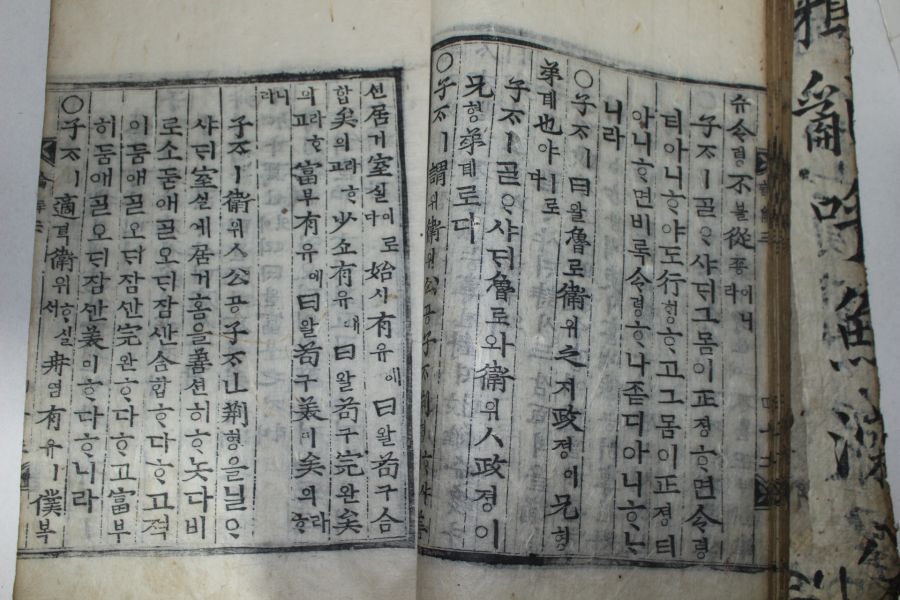 슈令령不블從죵이니라
子ᄌᆞㅣᄀᆞᆯᄋᆞ샤ᄃᆡ그몸이正졍ᄒᆞ면令령
티아니ᄒᆞ야도行ᄒᆡᆼᄒᆞ고그몸이正졍티
아니ᄒᆞ면비록令령ᄒᆞ나졷디아니ᄒᆞᄂᆞ
니라
○子ᄌᆞㅣ曰왈魯로衛위之지政졍이兄형
弟뎨也야ㅣ로다
子ᄌᆞㅣᄀᆞᆯᄋᆞ샤ᄃᆡ魯로와衛위ㅅ政졍이
兄형弟뎨로다
○子ᄌᆞㅣ謂위衛위公공子ᄌᆞ荊형ᄒᆞ샤ᄃᆡ善
션居거室실이로다始시有유에曰왈苟구合
합矣의라ᄒᆞ고少쇼有유에曰왈苟구完완矣
의라ᄒᆞ고富부有유에曰왈苟구美미矣의라ᄒᆞ
니라
子ᄌᆞㅣ衛위ㅅ公공子ᄌᆞ荊형을닐ᄋᆞ
샤ᄃᆡ室실에居거홈을善션히ᄒᆞ놋다비
로소둠애ᄀᆞᆯ오ᄃᆡ잠ᄭᅡᆫ合합ᄒᆞ다ᄒᆞ고젹
이둠애ᄀᆞᆯ오ᄃᆡ잠ᄭᅡᆫ完완ᄒᆞ다ᄒᆞ고富부
히둠애ᄀᆞᆯ오ᄃᆡ잠ᄭᅡᆫ美미ᄒᆞ다ᄒᆞ니라
○子ᄌᆞㅣ適뎍衛위ᄒᆞ실서冉염有유ㅣ僕복